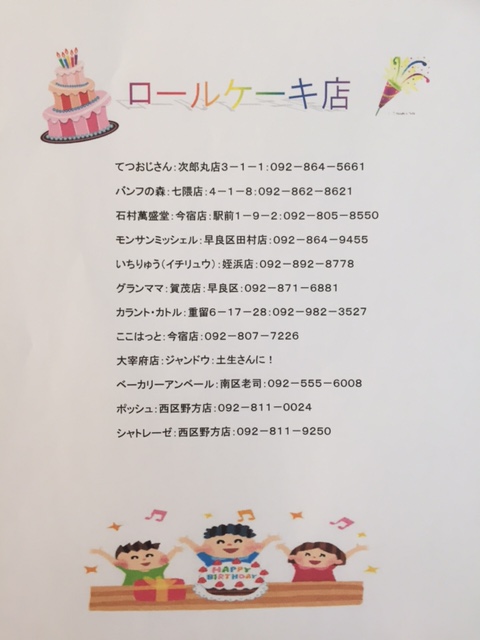 ロールケーキ店
てつおじさん：次郎丸店３－１－１：０９２－８６４－５６６１
バンフの森：七隈店：４－１－８：０９２－８６２－８６２１
石村萬盛堂：今宿店：駅前１－９－２：０９２－８０５－８５５０
モンサンミッシェル：早良区田村店：０９２－８６４－９４５５
いちりゅう（イチリュウ）：姪浜店：０９２－８９２－８７７８
グランママ：賀茂店：早良区：０９２－８７１－６８８１
カラント・カトル：重留６－１７－２８：０９２－９８２－３５２７
ここはっと：今宿店：０９２－８０７－７２２６
大宰府店：ジャンドウ：土生さんに！
ベーカリーアンベール：南区老司：０９２－５５５－６００８
ボッシュ：西区野方店：０９２－８１１－００２４
シャトレーゼ：西区野方店：０９２－８１１－９２５０
HAPPY
BIRTHDAY